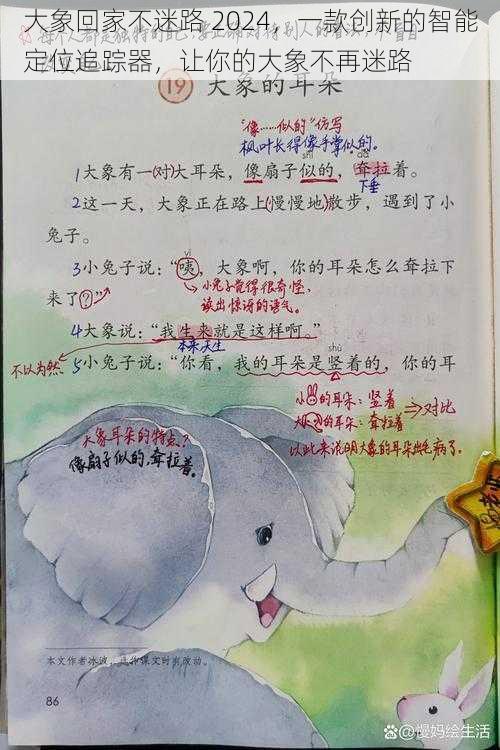 大象回家不迷路 2024，一款创新的智能
定位追踪器，让你的大象不再迷路
19 大象的耳朵
“像……似的”仿写
枫叶长得像手掌似的。
shì dā
1大象有一(对)大耳朵，像扇子似的，耷拉着。
下垂
2这一天，大象正在路上(慢慢地)散步，遇到了小
兔子。
yí
3小兔子说：“咦，大象啊，你的耳朵怎么耷拉下
来了？”
小兔子觉得很奇怪，
读出惊讶的语气。
4大象说：“我生来就是这样啊。”
本来天生
不以为然
shù
5小兔子说：“你看，我的耳朵是竖着的，你的耳
小的耳朵：竖着
大的耳朵：耷拉着
⇒对比
以此来说明大象的耳朵出毛病了。
大象耳朵的特点？
像扇子似的，耷拉着。
本文作者冰波，选作课文时有改动。
86
@慢妈绘生活